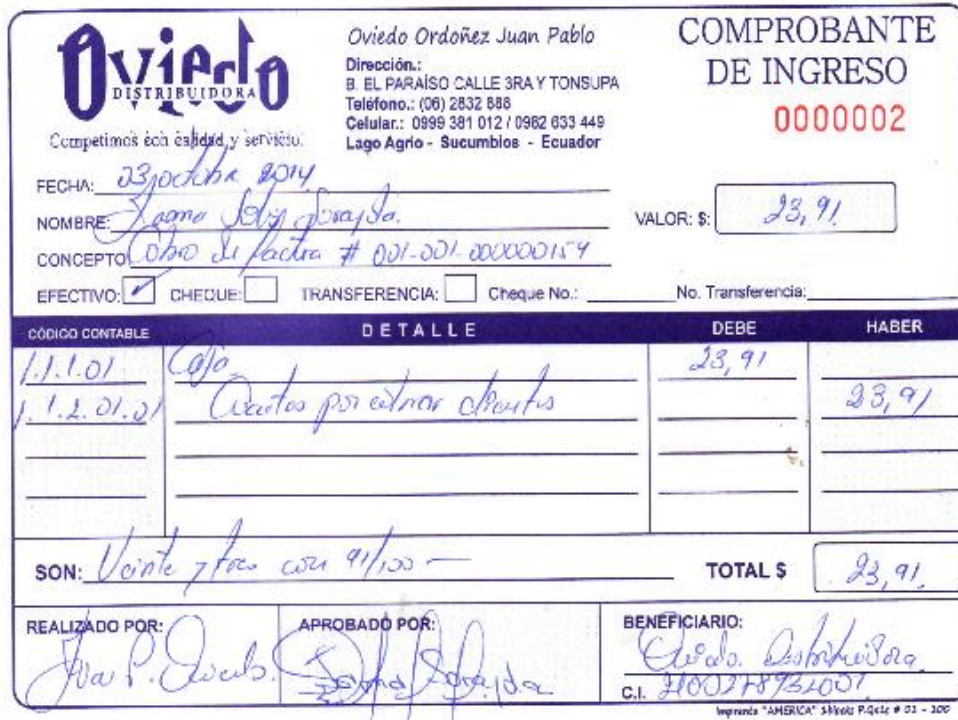 Oviedo
DISTRIBUIDORA
Competimos con calidad y servicio.
Oviedo Ordoñez Juan Pablo
Dirección.:
B. EL PARAÍSO CALLE 3RA Y TONSUPA
Teléfono.: (06) 2832 888
Celular.: 0999 381 012 / 0962 633 449
Lago Agrio - Sucumbios - Ecuador
COMPROBANTE
DE INGRESO
0000002
FECHA: 23 octubre 2014
NOMBRE:
VALOR: $: 23,91
CONCEPTO: Cobro de factura # 001-001-000000154
EFECTIVO: CHEQUE: TRANSFERENCIA: Cheque No.: No. Transferencia:
CÓDIGO CONTABLE DETALLE DEBE HABER
1.1.1.01 Caja 23,91
1.1.2.01.01 Cuentas por cobrar clientes 23,91
SON: Veinte y tres con 91/100 TOTAL $ 23,91
REALIZADO POR: APROBADO POR: BENEFICIARIO:
Juan P. Oviedo. Oviedo Distribuidora
C.I.
Imprenta "AMERICA"